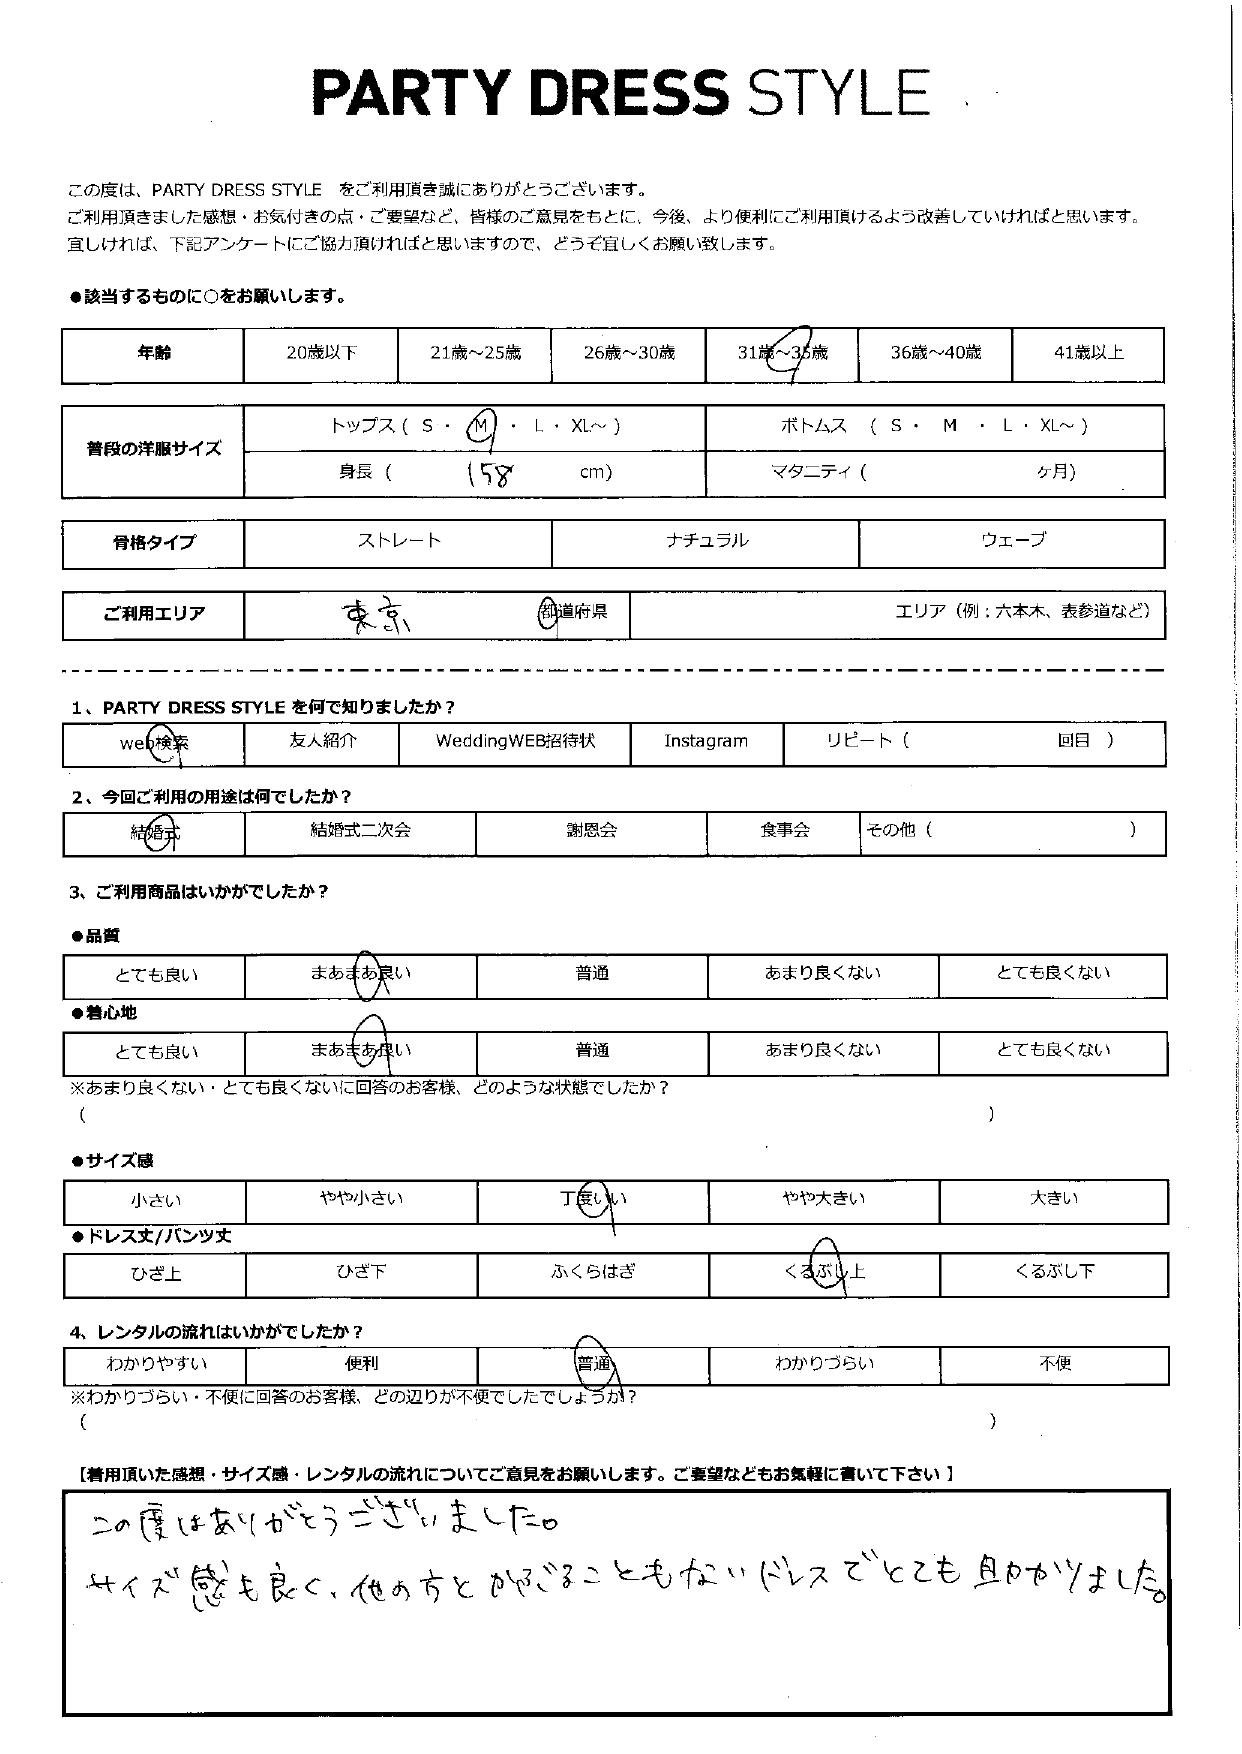 PARTY DRESS STYLE
この度は、PARTY DRESS STYLE をご利用頂き誠にありがとうございます。
ご利用頂きました感想・お気付きの点・ご要望など、皆様のご意見をもとに、今後、より便利にご利用頂けるよう改善していければと思います。
宜しければ、下記アンケートにご協力頂ければと思いますので、どうぞ宜しくお願い致します。
●該当するものに○をお願いします。
年齢 20歳以下 21歳～25歳 26歳～30歳 31歳～35歳 36歳～40歳 41歳以上
普段の洋服サイズ トップス ( S ・ M ・ L ・ XL～ ) ボトムス ( S ・ M ・ L ・ XL～ )
身長 ( 158 cm) マタニティ ( ヶ月)
骨格タイプ ストレート ナチュラル ウェーブ
ご利用エリア 東京 都道府県 エリア（例：六本木、表参道など）
1、PARTY DRESS STYLE を何で知りましたか？
web検索 友人紹介 WeddingWEB招待状 Instagram リピート ( 回目 )
2、今回ご利用の用途は何でしたか？
結婚式 結婚式二次会 謝恩会 食事会 その他 ( )
3、ご利用商品はいかがでしたか？
●品質
とても良い まあまあ良い 普通 あまり良くない とても良くない
●着心地
とても良い まあまあ良い 普通 あまり良くない とても良くない
※あまり良くない・とても良くないに回答のお客様、どのような状態でしたか？
( )
●サイズ感
小さい やや小さい 丁度いい やや大きい 大きい
●ドレス丈/パンツ丈
ひざ上 ひざ下 ふくらはぎ くるぶし上 くるぶし下
4、レンタルの流れはいかがでしたか？
わかりやすい 便利 普通 わかりづらい 不便
※わかりづらい・不便に回答のお客様、どの辺りが不便でしたでしょうか？
( )
【着用頂いた感想・サイズ感・レンタルの流れについてご意見をお願いします。ご要望などもお気軽に書いて下さい】
この度はありがとうございました。
サイズ感も良く、他の方とかぶることもないドレスでとても助かりました。